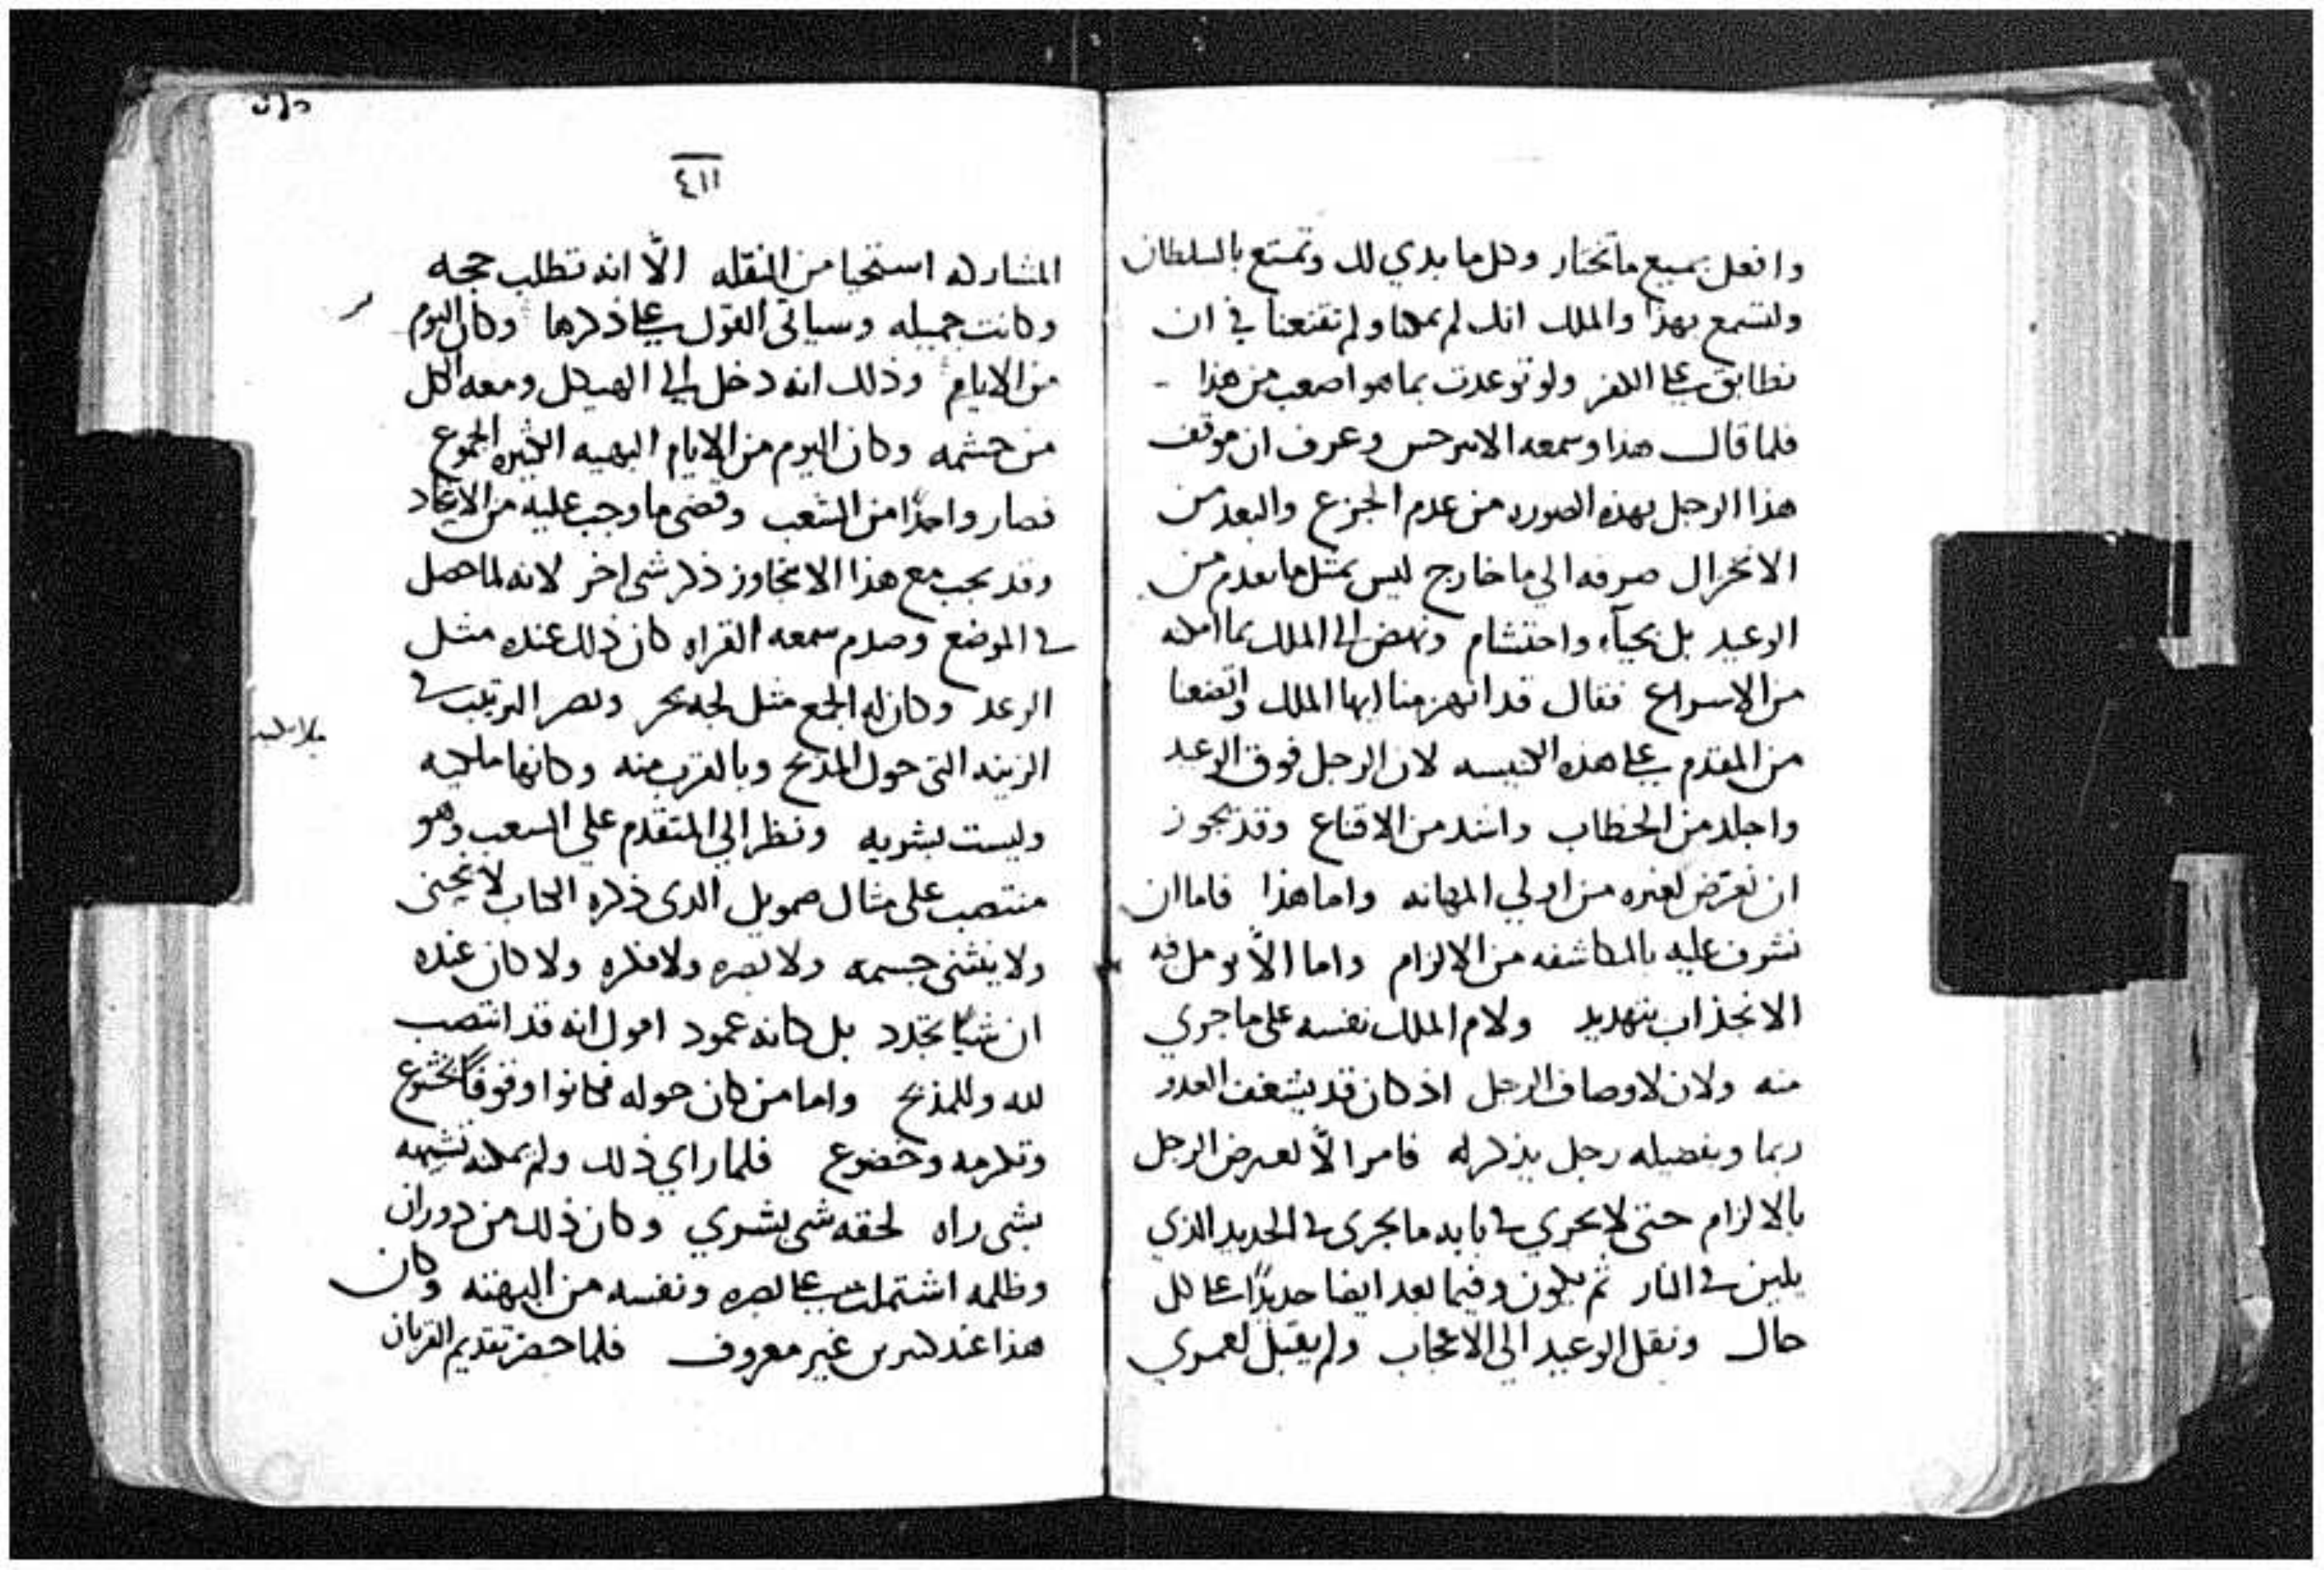 وافعل جميع ما تختار وكل ما بدي لك وتمتع بالسلطان
ولتسمع بهذا والملك انك لم تملنا ولم تقنعنا في ان
نطابق على الكفر ولو توعدت بما هو اصعب من هذا
فلما قال هذا وسمعه الابرخس وعرف ان موقف
هذا الرجل بهذه الصوره من عدم الجزع والبعد من
الانخزال صرفه الي ما خارج ليس بمثل ما تقدم من
الوعيد بل بحياء واحتشام ونهض الى الملك بما امكنه
من الاسراع فقال قد انهزمنا ايها الملك واتضعنا
من المقدم على هذه الكنيسه لان الرجل فوق الوعيد
واجلد من الخطاب واشد من الاقناع وقد يجوز
ان نعرض لغيره من اولي المهانه واما هذا فاما ان
نشرف عليه بالمكاشفه من الالزام واما الّا نومل فيه
الانجذاب بتهديد ولام الملك نفسه على ما جري
منه ولان لاوصاف الرجل اذ كان قد يشغف العدو
ربما وبفضيله رجل يذكر له فامر الّا يعرض الرجل
بالالزام حتى لا يجري في بابه ما يجرى في الحديد الذي
يلين في النار ثم يكون وفيما بعد ايضا حديدًا على كل
حال ونقل الوعيد الى الاعجاب ولم يقبل لعمري
٤١١
المشاركه استحيا من النقله الّا انه تطلب حجه
وكانت جميله وسياتي القول على ذكرها وكان اليوم
من الايام وذلك انه دخل الى الهيكل ومعه الكل
من حشمه وكان اليوم من الايام البهيه الكثيره الجموع
فصار واحدًا من الشعب وقضى ما وجب عليه من الاتحاد
وقد يجب مع هذا الا نتجاوز ذكر شى اخر لانه لما حصل
في الموضع وصدم سمعه القراه كان ذلك عنده مثل
الرعد وكان له الجمع مثل لجه بحر وبصر الترتيب في
الزينه التى حول المذبح وبالقرب منه وكانها ملكيه
وليست بشريه ونظر الي المتقدم على الشعب وهو
منتصب على مثال صمويل الذى ذكره الكتاب لا ينحنى
ولا ينثنى جسمه ولا بصره ولا فكره ولا كان عنده
ان شيًا تجدد بل كانه عمود اقول انه قد انتصب
لله وللمذبح واما من كان حوله فكانوا وقوفًا بخشوع
وتكرمه وخضوع فلما راي ذلك ولم يمكنه تشبيهه
بشى راه لحقه شى بشري وكان ذلك من دوران
وظلمه اشتملت على بصره ونفسه من البهته وكان
هذا عند كثيرين غير معروف فلما حضر تقديم القربان